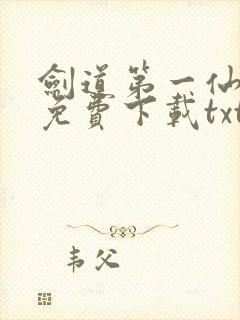 劍道第一仙
免費下載txt
韦父